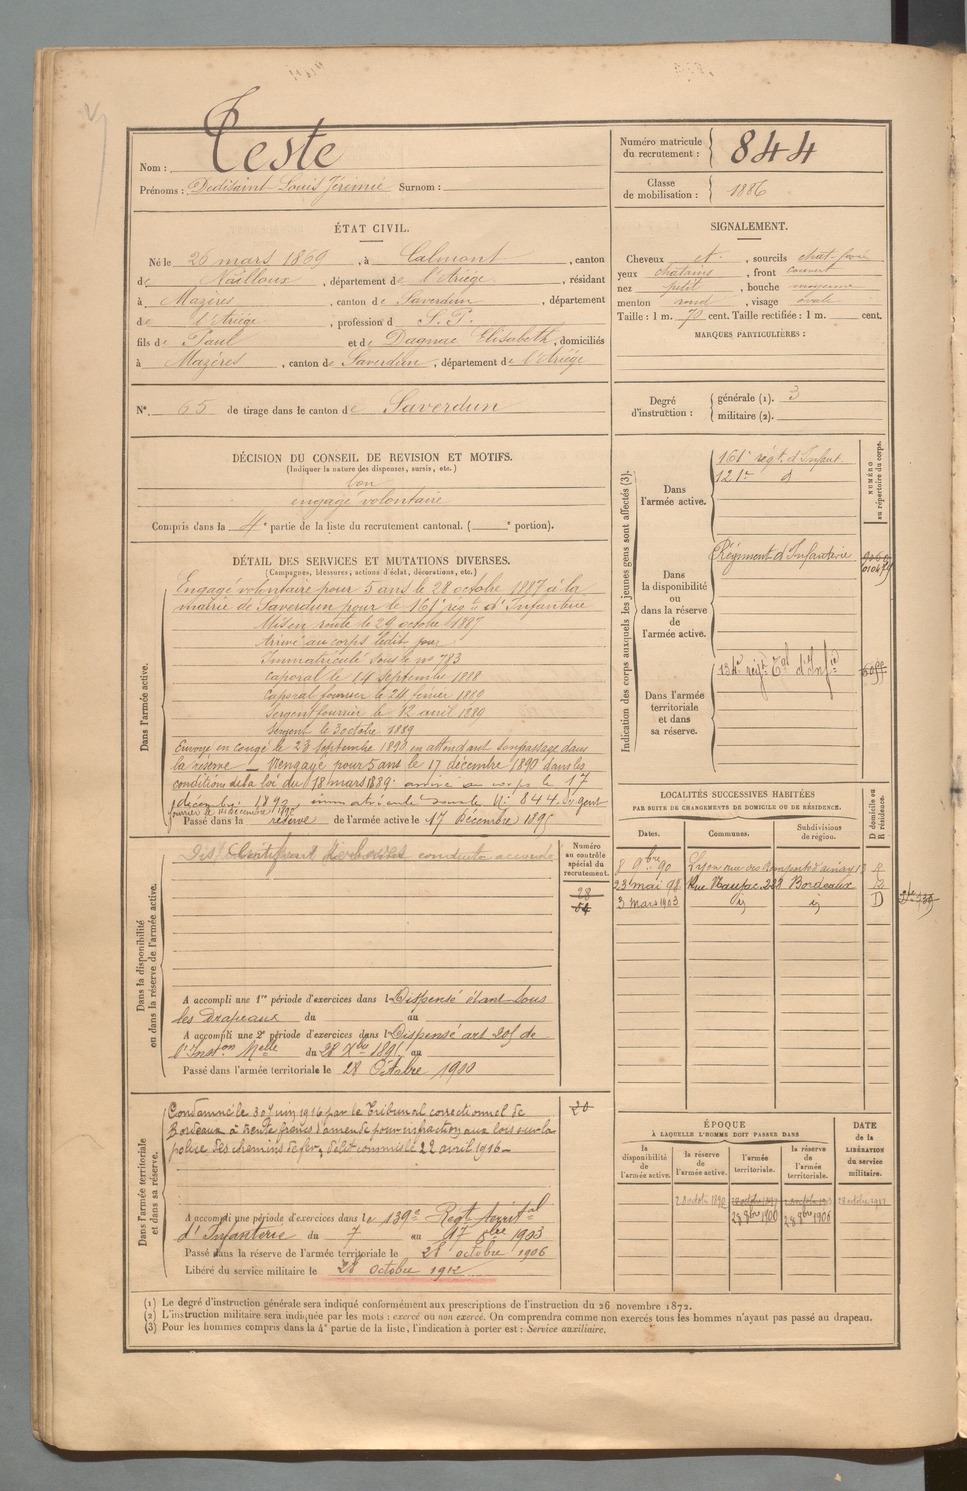 Nom : Teste
Prénoms : Louis Jérémie Surnom :
Numéro matricule du recrutement : 844
Classe de mobilisation : 1886
ÉTAT CIVIL.
Né le 26 mars 1869, à Calmont, canton
de Nailloux, département de l'Ariège, résidant
à Mazères, canton de Saverdun, département
de l'Ariège, profession d S. P.
fils de Paul et de Dagnac Elisabeth, domiciliés
à Mazères, canton de Saverdun, département de l'Ariège
N° 65 de tirage dans le canton de Saverdun
SIGNALEMENT.
Cheveux et, sourcils
yeux chatains, front couvert
nez petit, bouche moyenne
menton rond, visage ovale
Taille : 1 m. 70 cent. Taille rectifiée : 1 m. cent.
MARQUES PARTICULIÈRES :
Degré d'instruction : générale (1). 3
militaire (2).
DÉCISION DU CONSEIL DE REVISION ET MOTIFS.
(Indiquer la nature des dispenses, sursis, etc.)
bon
engagé volontaire
Compris dans la 4e partie de la liste du recrutement cantonal. ( e portion).
DÉTAIL DES SERVICES ET MUTATIONS DIVERSES.
(Campagnes, blessures, actions d'éclat, décorations, etc.)
Dans l'armée active.
Engagé volontaire pour 5 ans le 28 octobre 1887 à la
mairie de Saverdun pour le 161e régt d'Infanterie
Mis en route le 29 octobre 1887
Arrivé au corps ledit jour
Immatriculé sous le no 783
Caporal le 14 Septembre 1888
Caporal fourrier le 24 février 1889
Sergent fourrier le 12 avril 1889
Sergent le 3 octobre 1889
Envoyé en congé le 23 septembre 1890 en attendant son passage dans
la réserve _ Rengagé pour 5 ans le 17 décembre 1890 dans les
conditions de la loi du 18 mars 1889. arrivé au corps le 17
décembre 1890 immatriculé sous le No 844. Sergent
fourrier le
Passé dans la réserve de l'armée active le 17 Décembre 1895
Indication des corps auxquels les jeunes gens sont affectés (3).
NUMÉRO au répertoire du corps.
Dans l'armée active.
161e régt. d'Infant.
121e d
Dans la disponibilité ou dans la réserve de l'armée active.
Régiment d'Infanterie
Dans l'armée territoriale et dans sa réserve.
régt Tal d'Infie
LOCALITÉS SUCCESSIVES HABITÉES
PAR SUITE DE CHANGEMENTS DE DOMICILE OU DE RÉSIDENCE.
Dates. Communes. Subdivisions de région. D domicile ou R résidence.
8 9bre 90 Lyon rue des Remparts d'ainay 13 R
23 mai 98 Bordeaux
3 mars 1903 D
Dans la disponibilité ou dans la réserve de l'armée active.
Numéro au contrôle spécial du recrutement.
28
A accompli une 1re période d'exercices dans l Dispensé étant sous
les drapeaux du au
A accompli une 2e période d'exercices dans l Dispensé art 205 de
l'Inston Melle du 28 Xbre 1895 au
Passé dans l'armée territoriale le 28 Octobre 1900
Dans l'armée territoriale et dans sa réserve.
Condamné le 30 juin 1916 par le Tribunal correctionnel de
Bordeaux à trente francs d'amende pour infraction aux lois sur la
police des chemins de fer, délit commis le 22 avril 1916_
20
A accompli une période d'exercices dans le 139e Regt territal
d'Infanterie du 7 au 17 1903
Passé dans la réserve de l'armée territoriale le 28 octobre 1906
Libéré du service militaire le 28 Octobre 1912
ÉPOQUE
À LAQUELLE L'HOMME DOIT PASSER DANS
la disponibilité de l'armée active. la réserve de l'armée active. l'armée territoriale. la réserve de l'armée territoriale.
DATE de la LIBÉRATION du service militaire.
28 8bre 1900 28 8bre 1906
(1) Le degré d'instruction générale sera indiqué conformément aux prescriptions de l'instruction du 26 novembre 1872.
(2) L'instruction militaire sera indiquée par les mots : exercé ou non exercé. On comprendra comme non exercés tous les hommes n'ayant pas passé au drapeau.
(3) Pour les hommes compris dans la 4e partie de la liste, l'indication à porter est : Service auxiliaire.